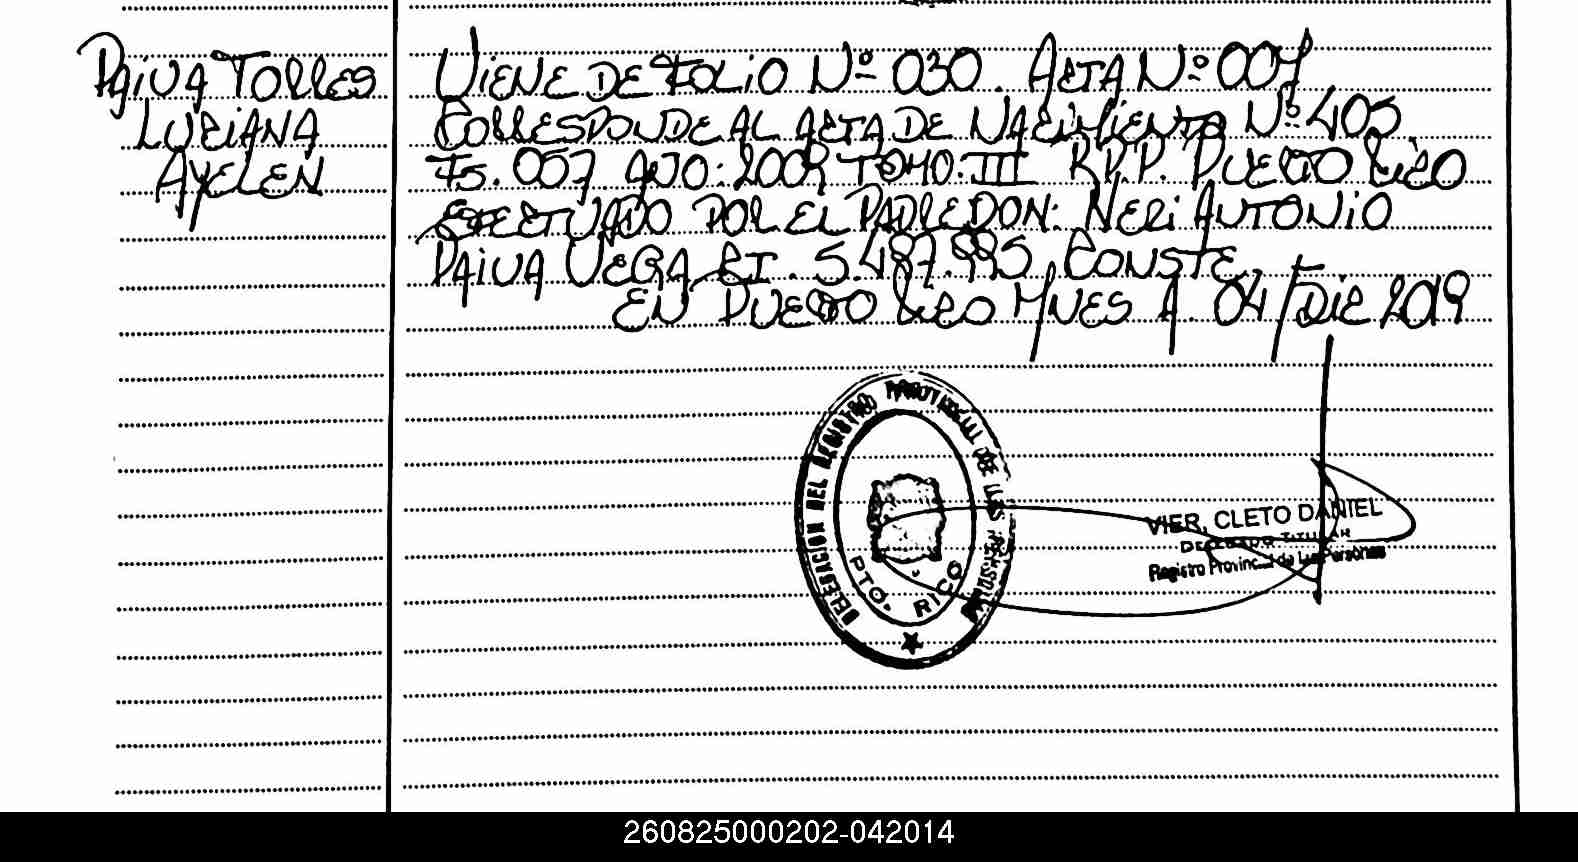 PAIVA TORRES
LUCIANA
AYELEN
VIENE DE FOLIO Nº 030. ACTA Nº 007
CORRESPONDE AL ACTA DE NACIMIENTO Nº 405
Fs. 057 AÑO: 2009 TOMO: III R.P.P. PUERTO RICO
EFECTUADO POR EL PADRE DON: NERI ANTONIO
PAIVA VEGA CI. 5.487.995 CONSTE
EN PUERTO RICO MNES A. 04/DIC 2019
DELEGACION DEL REGISTRO PROVINCIAL DE LAS PERSONAS
PTO. RICO
VIER, CLETO DANIEL
DELEGADO TITULAR
Registro Provincial de Las Personas
260825000202-042014